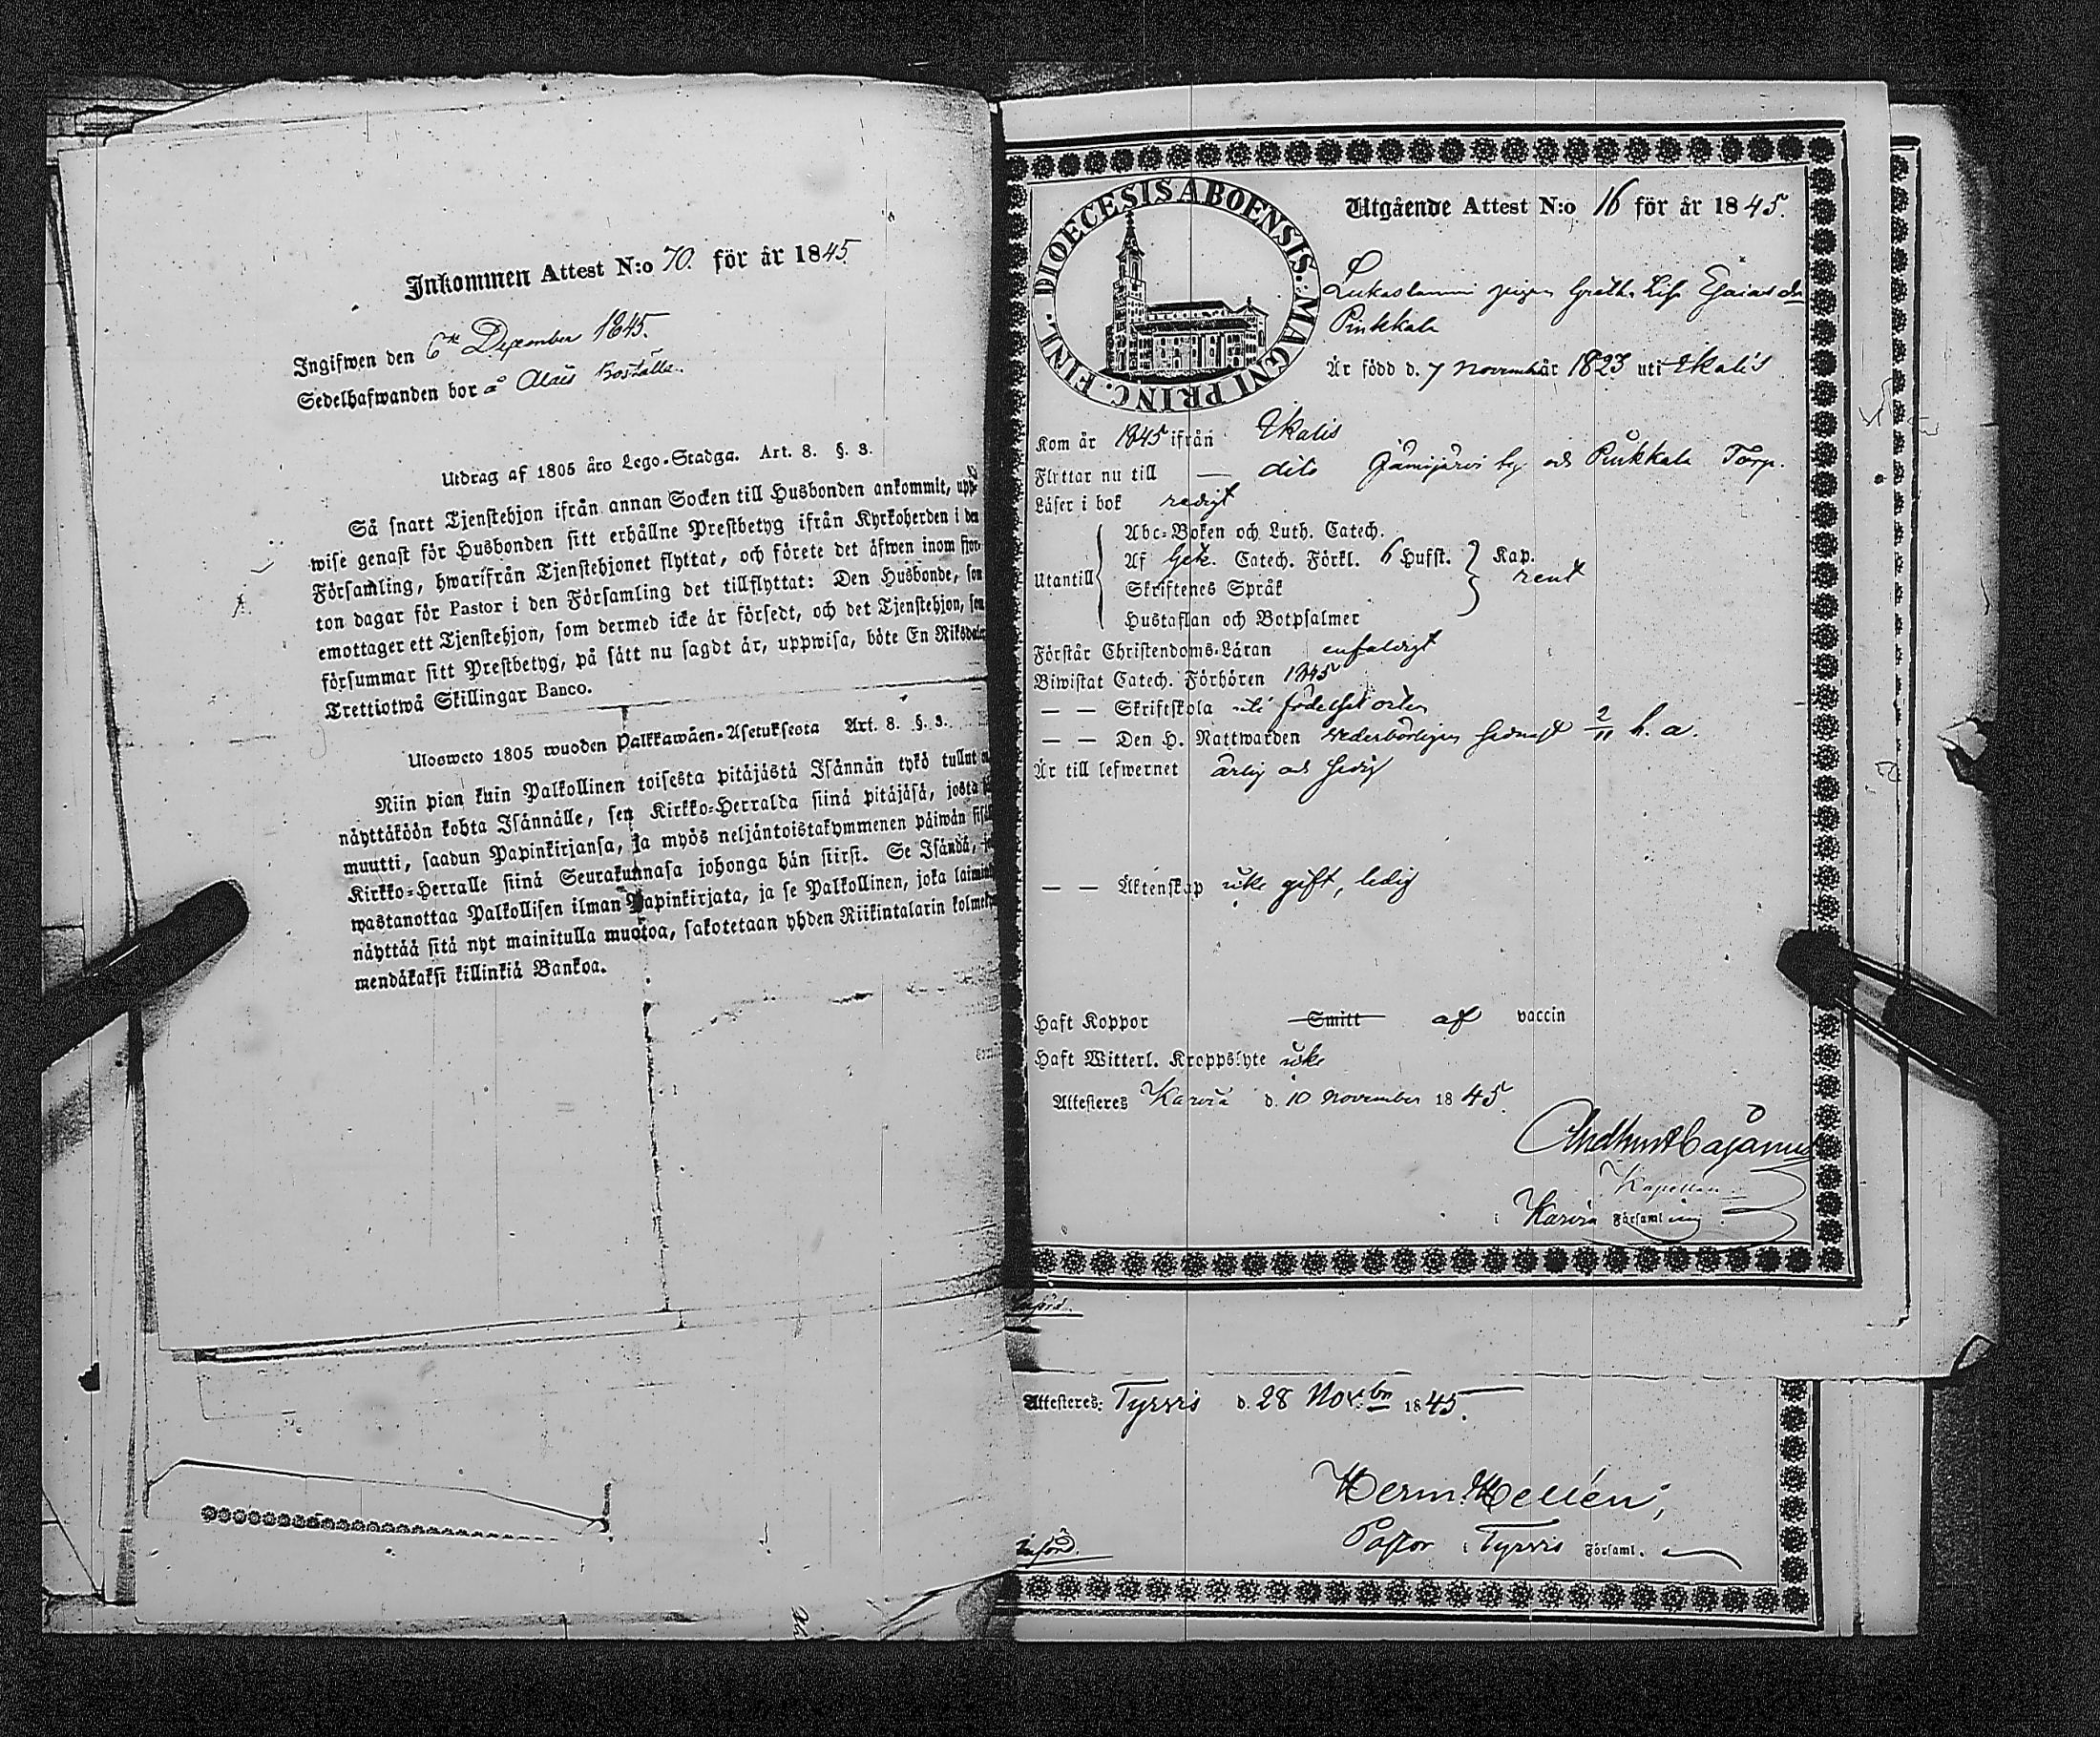 Inkommen Attest N:o 70. för år 1845.
Ingifwen den 6te December 1845.
Sedelhafwanden bor å Alais Boställe.
Utdrag af 1805 års Lego-Stadga. Art. 8. §. 3.
Så snart Tjenstehjon ifrån annan Socken till Husbonden ankommit, upp-
wise genast för Husbonden sitt erhållne Prestbetyg ifrån Kyrkoherden i den
Församling, hwarifrån Tjenstehjonet flyttat, och förete det äfwen inom fjor-
ton dagar för Pastor i den Församling det tillflyttat: Den Husbonde, som
emottager ett Tjenstehjon, som dermed icke är försedt, och det Tjenstehjon, som
försummar sitt Prestbetyg, på sätt nu sagdt är, uppwisa, böte En Riksdaler
Trettiotwå Skillingar Banco.
Ulosweto 1805 wuoden Palkkawäen-Asetuksesta Art. 8. §. 3.
Niin pian kuin Palkollinen toisesta pitäjästä Isännän tykö tullut
näyttäköön kohta Isännälle, sen Kirkko-Herralda siinä pitäjäsä, josta
muutti, saadun Papinkirjansa, ja myös neljäntoistakymmenen päiwän
Kirkko-Herralle siinä Seurakunnasa johonga hän siirsi. Se Isändä,
wastanottaa Palkollisen ilman Papinkirjata, ja se Palkollinen, joka
näyttää sitä nyt mainitulla muotoa, sakotetaan yhden Riikintalarin
mendäkaksi killinkiä Bankoa.
DIOECESIS ABOENSIS: MAGNI PRINC. FINL.
Utgående Attest N:o 16 för år 1845.
Lukaslammi pigan Greth. Lisa Esaias dr
Pinkkala
Är född d. 7 November år 1823 uti Ikalis
Kom år 1845 ifrån Ikalis
Flyttar nu till — dito Jämijärvi by och Pinkkala Torp.
Läser i bok redigt
Utantill
Abc-Boken och Luth. Catech.
Af Gez. Catech. Förkl. 6 Hufst. Kap.
Skriftenes Språk rent
Hustaflan och Botpsalmer
Förstår Christendoms-Läran enfaldigt
Biwistat Catech. Förhören 1845
— — Skriftskola uti födelse orten
— — Den H. Nattwarden wederbörligen senast 2/11 h. a.
Är till lefwernet ärlig och sedig
— — Äktenskap icke gift, ledig
Haft Koppor Smitt af vaccin
Haft Witterl. Kroppslyte icke
Attesteres Karvia d. 10 November 1845.
Cajanus
Kapellan
i Karvia Församling
Attesteres: Tyrvis d. 28 Nov:br 1845.
Herm: Hellén,
Pastor i Tyrvis Församl.